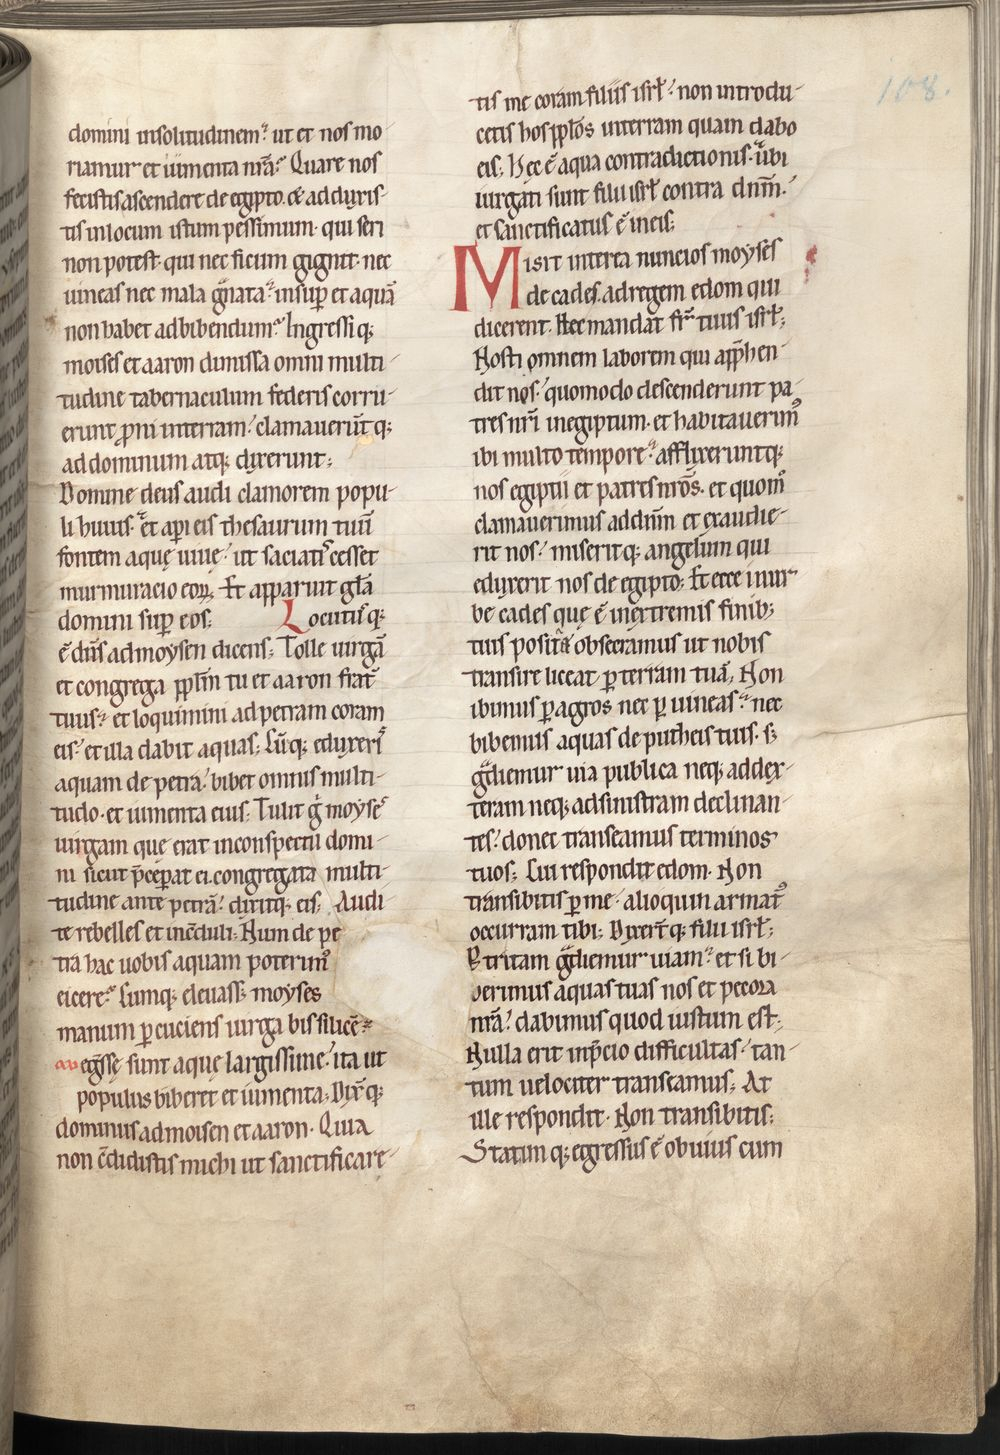 108.
domini insolitudinem? ut et nos mo-
riamur et iumenta nr̄a? Quare nos
fecistis ascendere de egypto. & adduxis-
tis inlocum istum pessimum. qui seri
non potest. qui nec ficum gignit. nec
uineas nec mala gͣnata? insup̄ et aquā
non habet adbibendum? Ingressi q;
moises et aaron dimissa omni multi-
tudine tabernaculum federis corru-
erunt p̄ni interram? clamauerūt q;
ad dominum atq; dixerunt;
Domine deus audi clamorem popu-
li huius. et aperi eis thesaurum tuū
fontem aquę uiuę? ut saciatis cesset
murmuracio eoꝝ. Et apparuit gl̄a
domini sup̄ eos; Locutus q;
ē dn̄s ad moysen dicens; Tolle uirgā
et congrega pp̄lm tu et aaron frat̄
tuus? et loquimini ad petram coram
eis? et illa dabit aquas; Cūq; eduxeris
aquam de petra? bibet omnis multi-
tudo. et iumenta eius; Tulit gͥ moyses
uirgam que erat inconspectu domi-
ni sicut p̄cep̄at ei. congregata multi-
tudine ante petrā? dixitq; eis; Audi-
te rebelles et increduli; Num de pe
tra hac uobis aquam poterimꝰ
eicere? Cumq; eleuass; moyses
manum p̱cuciens uirga bis silicē?
egressę sunt aque largissime? ita ut
populus biberet et iumenta; Dix̄ q;
dominus ad moisen et aaron. Quia
non c̄didistis michi ut sanctificare-
tis me coram filiis isrl̄? non introdu-
cetis hos pp̄los interram quam dabo
eis; Hec ē aqua contradictionis. ubi
iurgati sunt filii isrl̄ contra dn̄m?
et sanctificatus ē ineis;
Misit interea nuncios moyses
de cades. ad regem edom qui
dicerent. Hec mandat fr̄ tuus isrl̄;
Nosti omnem laborem qui app̄hen-
dit nos? quomodo descenderunt pa-
tres nr̄i inegiptum. et habitauerimꝰ
ibi multo tempore? afflixeruntq;
nos egiptii et patres nr̄os. et quom̊
clamauerimus ad dn̄m et exaudie-
rit nos? miseritq; angelum qui
eduxerit nos de egipto; Et ecce inur-
be cades quę ē inextremis finib;
tuis posita obsecramus ut nobis
transire liceat p̱ terram tuā; Non
ibimus p̱ agros nec p̱ uineas? nec
bibemus aquas de putheis tuis. s;
gͣdiemur uia publica neq; ad dex-
teram neq; ad sinistram declinan-
tes? donec transeamus terminos
tuos; Cui respondit edom. Non
transibitis p̱ me? alioquin armatꝰ
occurram tibi; Dixer̄t q; filii isrl̄;
Ptritam gͣdiemur uiam? et si bi-
berimus aquas tuas nos et pecora
nr̄a? dabimus quod iustum est;
Nulla erit inp̄cio difficultas? tan-
tum uelociter transeamus; At
ille respondit. Non transibitis;
Statim q; egressus ē obuius cum